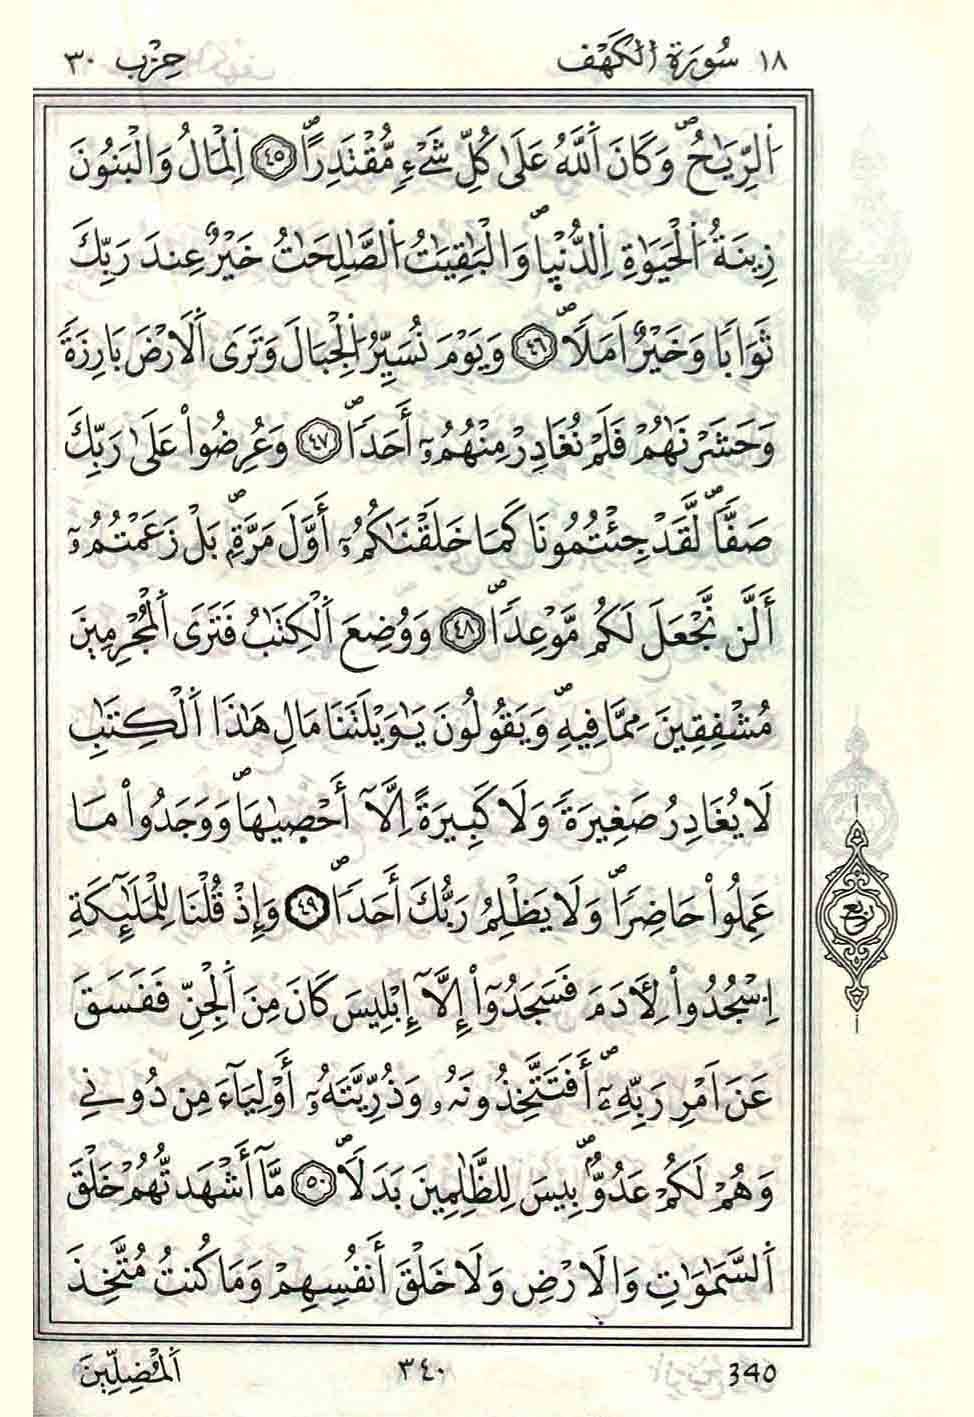 ١٨ سُورَةُ الكَهْف حِزْب ٣٠
اَ۬لرِّيَٰحُۖ وَكَانَ اَ۬للَّهُ عَلَىٰ كُلِّ شَےْءٖ مُّقْتَدِراًۖ ٤٥ اِ۬لْمَالُ وَالْبَنُونَ
زِينَةُ اُ۬لْحَيَوٰةِ اِ۬لدُّنْي۪اۖ وَالْبَٰقِيَٰتُ اُ۬لصَّٰلِحَٰتُ خَيْرٌ عِندَ رَبِّكَ
ثَوَاباٗ وَخَيْرٌ اَمَلاٗۖ ٤٦ وَيَوْمَ نُسَيِّرُ اُ۬لْجِبَالَ وَتَرَى اَ۬لَارْضَ بَارِزَةٗ
وَحَشَرْنَٰهُمْ فَلَمْ نُغَادِرْ مِنْهُمُۥٓ أَحَداٗۖ ٤٧ وَعُرِضُواْ عَلَىٰ رَبِّكَ
صَفّاٗۖ لَّقَدْ جِئْتُمُونَا كَمَا خَلَقْنَٰكُمُۥٓ أَوَّلَ مَرَّةِۢۖ بَلْ زَعَمْتُمُۥٓ
أَلَّن نَّجْعَلَ لَكُم مَّوْعِداٗۖ ٤٨ وَوُضِعَ اَ۬لْكِتَٰبُ فَتَرَى اَ۬لْمُجْرِمِينَ
مُشْفِقِينَ مِمَّا فِيهِۖ وَيَقُولُونَ يَٰوَيْلَتَنَا مَالِ هَٰذَا اَ۬لْكِتَٰبِ
لَا يُغَادِرُ صَغِيرَةٗ وَلَا كَبِيرَةً اِلَّآ أَحْص۪يٰهَاۖ وَوَجَدُواْ مَا
عَمِلُواْ حَاضِراٗۖ وَلَا يَظْلِمُ رَبُّكَ أَحَداٗۖ ٤٩ وَإِذْ قُلْنَا لِلْمَلَٰٓئِكَةِ
اِ۟سْجُدُواْ لِأٓدَمَ فَسَجَدُوٓاْ إِلَّآ إِبْلِيسَ كَانَ مِنَ اَ۬لْجِنِّ فَفَسَقَ
عَنَ اَمْرِ رَبِّهِۦٓۖ أَفَتَتَّخِذُونَهُۥ وَذُرِّيَّتَهُۥٓ أَوْلِيَآءَ مِن دُونِي
وَهُمْ لَكُمْ عَدُوُّۢۖ بِيسَ لِلظَّٰلِمِينَ بَدَلاٗۖ ٥٠ مَّآ أَشْهَدتُّهُمْ خَلْقَ
اَ۬لسَّمَٰوَٰتِ وَالَارْضِ وَلَا خَلْقَ أَنفُسِهِمْ وَمَا كُنتُ مُتَّخِذَ
ربع
اَ۬لْمُضِلِّينَ ٣٤٠ 340